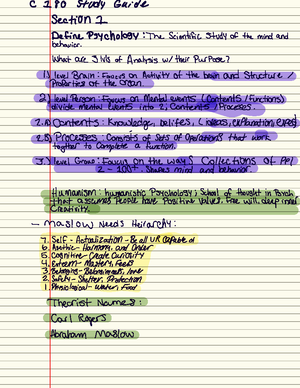 C 190 Study Guide
Section 1
Define Psychology: The Scientific Study of the mind and
behavior.
What are 3 lvls of Analysis w/ their Purpose?
1.) level Brain: Focus on Activity of the brain and Structure /
Properties of the organ.
2.) level Person: Focus on Mental events (Contents / Functions)
divide Mental events into 2, Contents / Processes.
2.A) Contents: Knowledge, beliefs,
2.B) Processes: Consists of Sets of Operations that work
together to Complete a function.
3.) level Group: Focus on the ways Collections of Ppl
2 - 100+. Shapes mind and behavior.
Humanism: humanistic Psychology: School of thought in Psych
that assumes People have Positive values, Free will, deep inner
Creativity.
- Maslow Needs Heirarchy:
7. Self-Actualization - Be all UR Capable of
6. Asthetic - Harmony and Order
5. Cognitive - Create Curiosity
4. Esteem - Mastery,
3. Belonging - Belongingness, love
2. Safety - Shelter, Protection
1. Physiological - Water, Food
Theorist Names:
Carl Rogers
Abraham Maslow